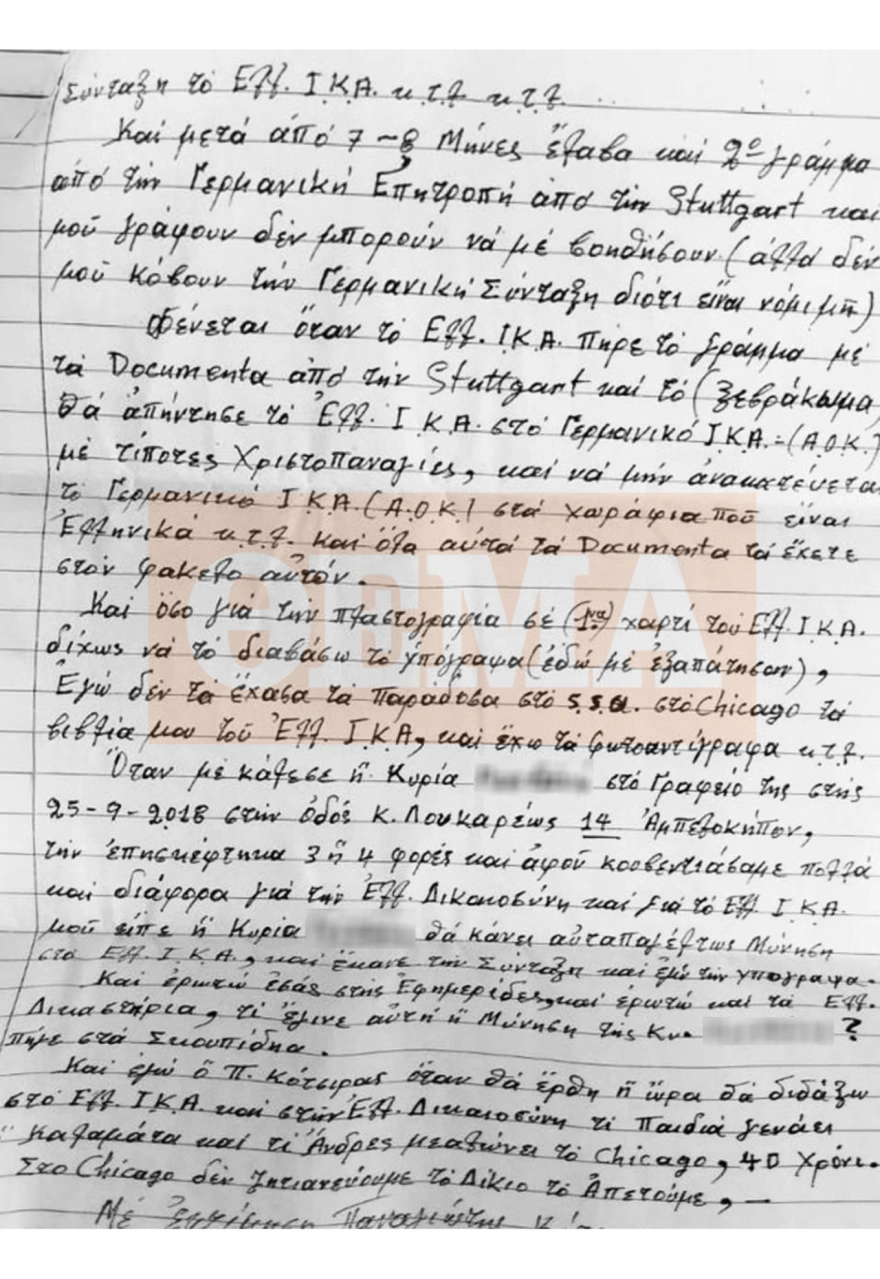 Σύνταξη τό Ελλ. Ι.Κ.Α. κ.τ.λ κ.τ.λ.....
Καί μετά από 7-8 Μήνες έλαβα καί 2º γράμμα
από τήν Γερμανική Επητροπή από τήν Stuttgart καί
μού γράφουν δέν μπορούν νά μέ βοηθήσουν (αλλά δέν
μού κόβουν τήν Γερμανική Σύνταξη διότι είναι νόμιμη)
Φένεται όταν τό Ελλ. Ι.Κ.Α. πήρε τό γράμμα μέ
τά Documenta από τήν Stuttgart καί τό (ξεβράκωμα
θά απήντησε τό Ελλ. Ι Κ.Α. στό Γερμανικό Ι.Κ.Α.=(Α.Ο.Κ.)
μέ τίποτες Χριστοπαναγίες, καί νά μήν ανακατέυεται
τό Γερμανικό Ι.Κ.Α.(Α.Ο.Κ) στά χωράφια πού είναι
Ελληνικά κ.τ.λ. καί όλα αυτά τά Documenta τά έχετε
στόν φακελο αυτόν.
Καί όσο γιά τήν πλαστογραφία σέ (1να) χαρτί τού Ελλ. Ι Κ.Α.
δίχως νά τό διαβάσω τό υπόγραψα (εδώ μέ εξαπάτησαν),
Εγώ δέν τά έχασα τά παράδοσα στό S.S.A. στό Chicago τά
βιβλία μου τού Ελλ. Ι.Κ.Α, καί έχω τά φωτοαντίγραφα κ.τ.λ.
Όταν μέ κάλεσε ή Κυρία στό Γραφείό της στής
25-9-2018 στήν οδός Κ. Λουκαρέως 14 Αμπελοκήπον,
τήν επησκέφτηκα 3 ή 4 φορές καί αφού κουβεντιάσαμε πολλά
καί διάφορα γιά τήν Ελλ. Δικαιοσύνη καί γιά τό Ελλ Ι Κ.Α.
μού είπε ή Κυρία θά κάνει αυταπαγέλτως Μύνηση
στό Ελλ. Ι.Κ.Α., καί έκανε τήν Σύνταξη καί εγώ τήν υπογραψα.
Καί ερωτώ εσάς στής Εφημερίδες, καί ερωτώ καί τά Ελλ.
Δικαστήρια, τί έγινε αυτή ή Μύνηση τής Κυ. ?
πήγε στά Σκουπίδηα.
Καί εγώ ό Π. Κότσιρας όταν θά έρθη ή ώρα θά διδάξω
στό Ελλ. Ι.Κ.Α. καί στήν Ελλ. Δικαιοσύνη τί Παιδιά γενάει
ή Καλαμάτα καί τί Άνδρες μεαλώνει τό Chicago, 40 Χρόνι.
Στο Chicago δέν ζητιανεύουμε τό Δίκιο τό Απετούμε, —
Μέ Εκτίμηση Παναγιώτης
ΘΕΜΑ